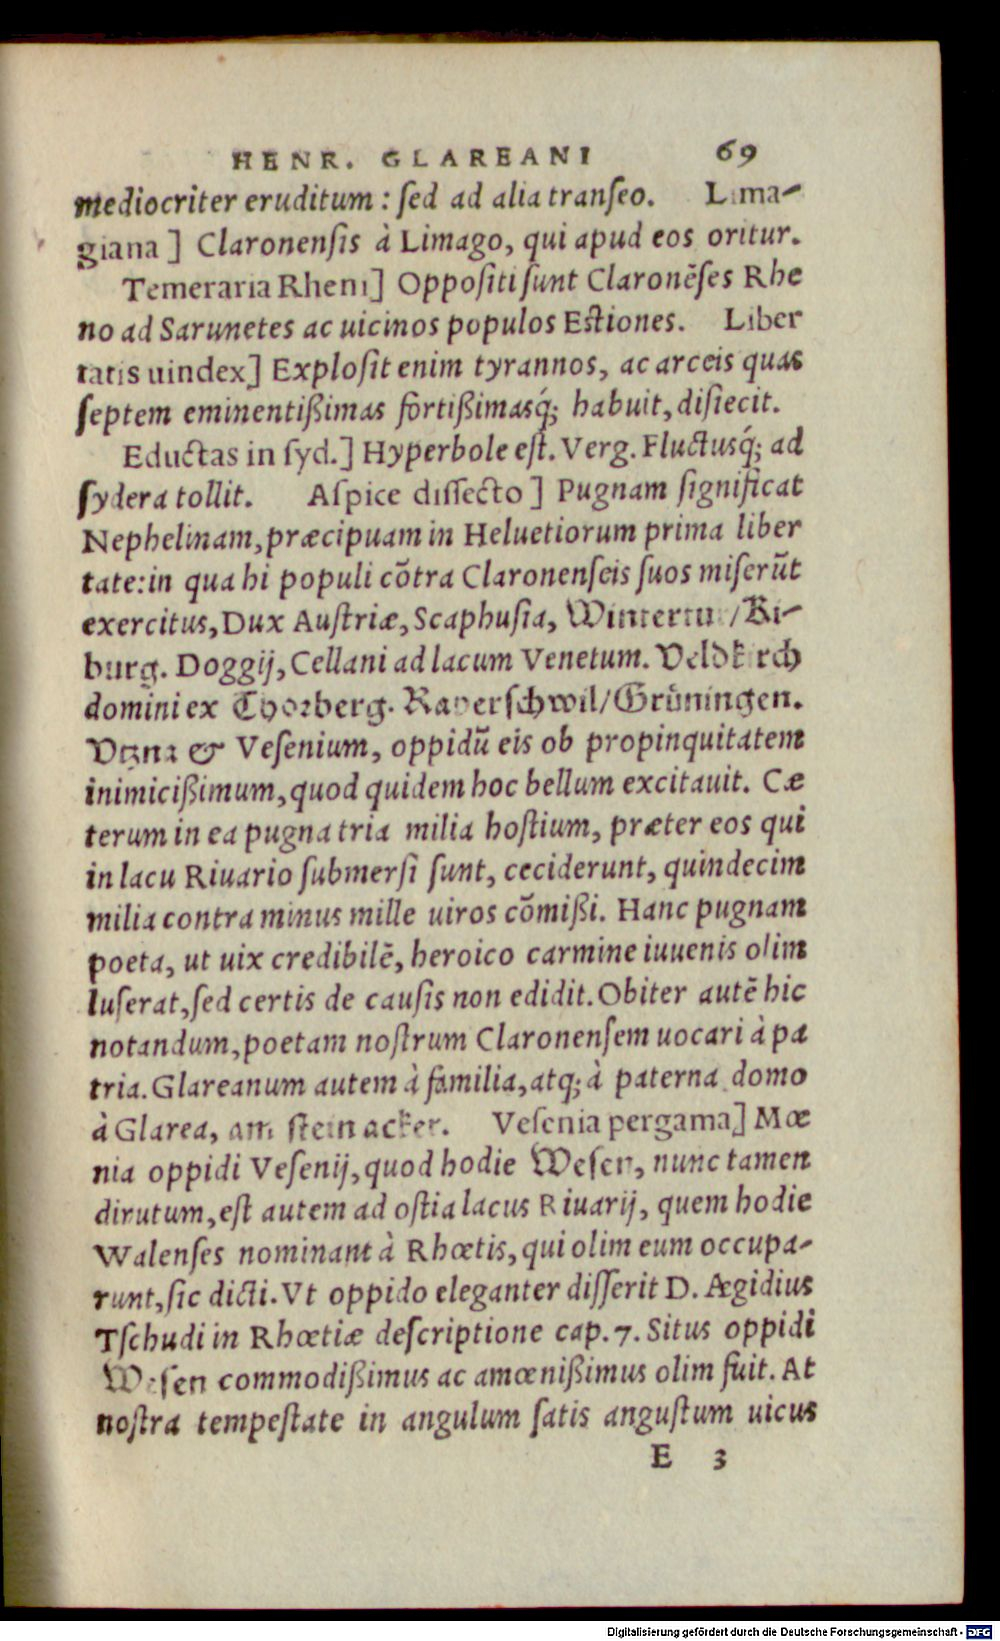 HENR. GLAREANI 69
mediocriter eruditum : ſed ad alia tranſeo. Lima-
giana ] Claronenſis à Limago, qui apud eos oritur.
Temeraria Rheni] Oppoſiti ſunt Claronēſes Rhe
no ad Sarunetes ac uicinos populos Eſtiones. Liber
tatis uindex] Exploſit enim tyrannos, ac arceis quas
ſeptem eminentißimas fortißimasq́; habuit, diſiecit.
Eductas in ſyd.] Hyperbole eſt. Verg. Fluctusq́; ad
ſydera tollit. Aſpice diſſecto ] Pugnam ſignificat
Nephelinam, præcipuam in Heluetiorum prima liber
tate: in qua hi populi cōtra Claronenſeis ſuos miſerūt
exercitus, Dux Auſtriæ, Scaphuſia, Wintertur/Ki-
burg. Doggij, Cellani ad lacum Venetum. Veldkirch
domini ex Thorberg. Raperſchwil/Grůningen.
Vtzna & Veſenium, oppidū eis ob propinquitatem
inimicißimum, quod quidem hoc bellum excitauit. Cæ
terum in ea pugna tria milia hoſtium, præter eos qui
in lacu Riuario ſubmerſi ſunt, ceciderunt, quindecim
milia contra minus mille uiros cōmißi. Hanc pugnam
poeta, ut uix credibilē, heroico carmine iuuenis olim
luſerat, ſed certis de cauſis non edidit. Obiter autē hic
notandum, poetam noſtrum Claronenſem uocari à pa
tria. Glareanum autem à familia, atq; à paterna domo
à Glarea, am ſteinacker. Veſenia pergama] Mœ
nia oppidi Veſenij, quod hodie Weſen, nunc tamen
dirutum, eſt autem ad oſtia lacus Riuarij, quem hodie
Walenſes nominant à Rhœtis, qui olim eum occupa-
runt, ſic dicti. Vt oppido eleganter diſſerit D. Ægidius
Tſchudi in Rhœtiæ deſcriptione cap. 7. Situs oppidi
Weſen commodißimus ac amœnißimus olim fuit. At
noſtra tempeſtate in angulum ſatis anguſtum uicus
E 3
Digitalisierung gefördert durch die Deutsche Forschungsgemeinschaft - DFG